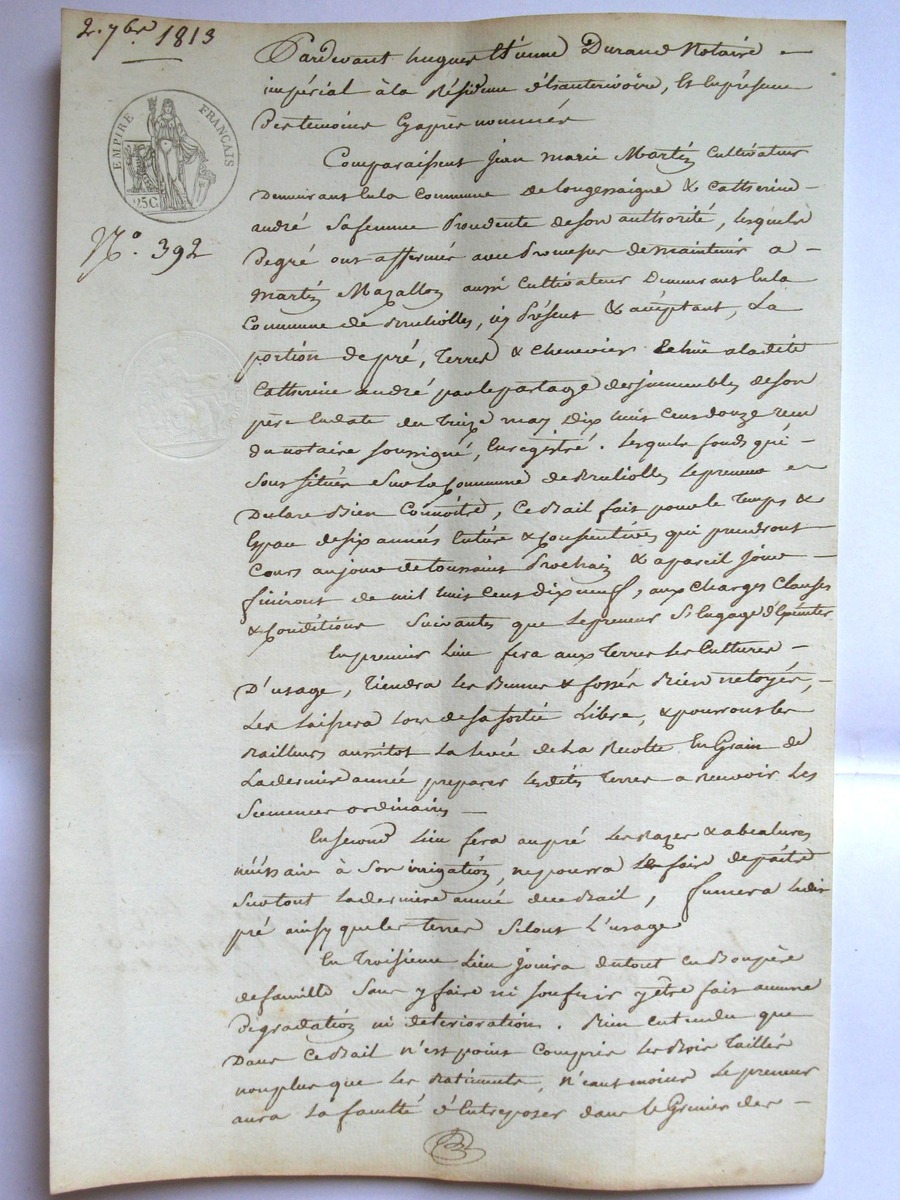 2. 7bre 1813
EMPIRE FRANÇAIS
25 C.
N.o 392
Pardevant hugues Etienne Durand Notaire
impérial à la Résidence d'hauterivoire, Et En présence
Des temoins Cy après nommés
Comparaissent Jean Marie Martin Cultivateur
Demeurant En la Commune de Longessaigne & Catherine
andré Sa femme Procedente de son authorité, lesquels
De gré ont affermés avec Promesse de maintenir a
Martin Mazallon aussi Cultivateur Demeurant En la
Commune de Brulliolles, icy Présent & acceptant, La
portion de pré, Terres & Chenevier Echüe a ladite
Catherine andré par le partage des immeubles de son
père En date du treize may Dix huit Cent douze recu
du notaire soussigné, Enregistré. Lesquels fonds qui
Sont situés Sur La Commune de Brulliolles Le preneur
Declare Bien Connoître, Ce Bail fait pour le Temps &
Espace de six années Entière & Consecutives qui prendront
Cours au jour de toussaint Prochain & a pareil Jour
finiront de mil huit Cent dix neuf, aux Charges Clauses
& Conditions Suivantes que Le preneur S'Engage d'Executer
En premier Lieu fera aux Terres Les Cultures
D'usage, Tiendra Les & fossés Bien netoyés,
Les Laissera Lors de sa sortie Libre, & pourront les
Bailleurs aussitot La Levée de La Recolte En Grain de
La derniere année preparer Lesdites Terres a Recevoir Les
Semences ordinaires
En second Lieu fera au pré Les Razes &
néçéssaire à Son irrigation, ne pourra Le faire depaitre
Surtout La derniere année du Bail, fumera Ledit
pré ainsy que les terres Selont L'usage
En Troisieme Lieu Jouira du tout En Bon père
de famille Sans y faire ni soufrir y être fait aucune
Degradation ni deterioration. Bien entendu que
Dans Ce Bail n'est point Compris Les Bois Taillés
non plus que Les Batiments, N'eantmoins Le preneur
aura La faculté d'Entreposer dans le Grenier des